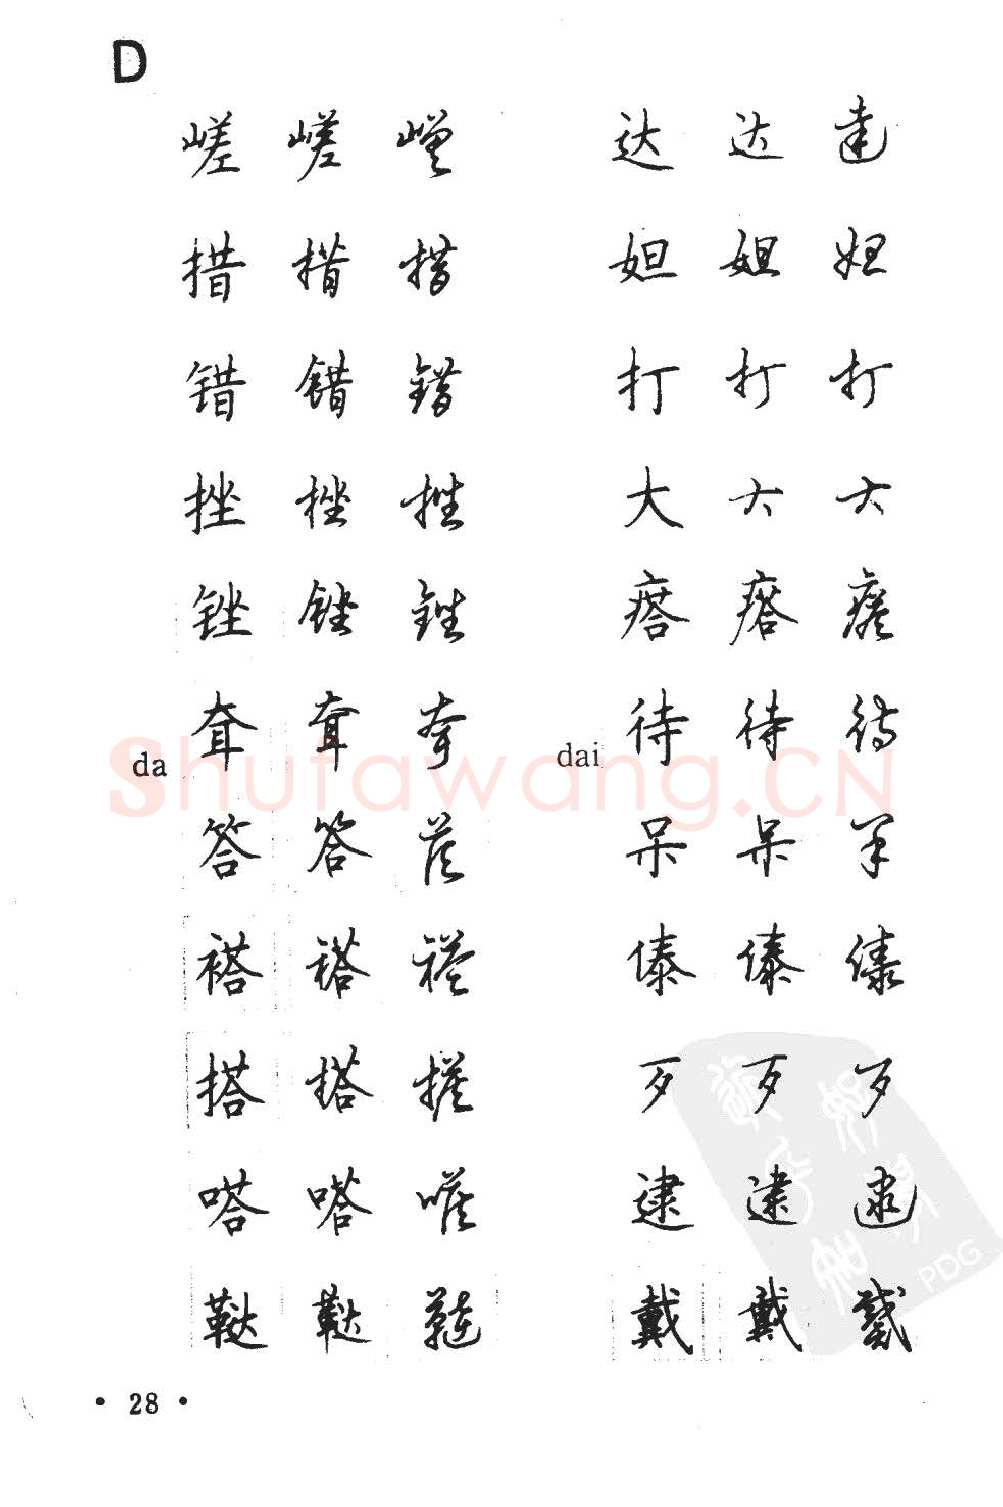 D
嵯 嵯 嵯 达 达 达
措 措 措 妲 妲 妲
错 错 错 打 打 打
挫 挫 挫 大 大 大
锉 锉 锉 瘩 瘩 瘩
da 耷 耷 耷 dai 待 待 待
答 答 答 呆 呆 呆
褡 褡 褡 傣 傣 傣
搭 搭 搭 歹 歹 歹
嗒 嗒 嗒 逮 逮 逮
鞑 鞑 鞑 戴 戴 戴
Shufawang.CN
PDG
• 28 •